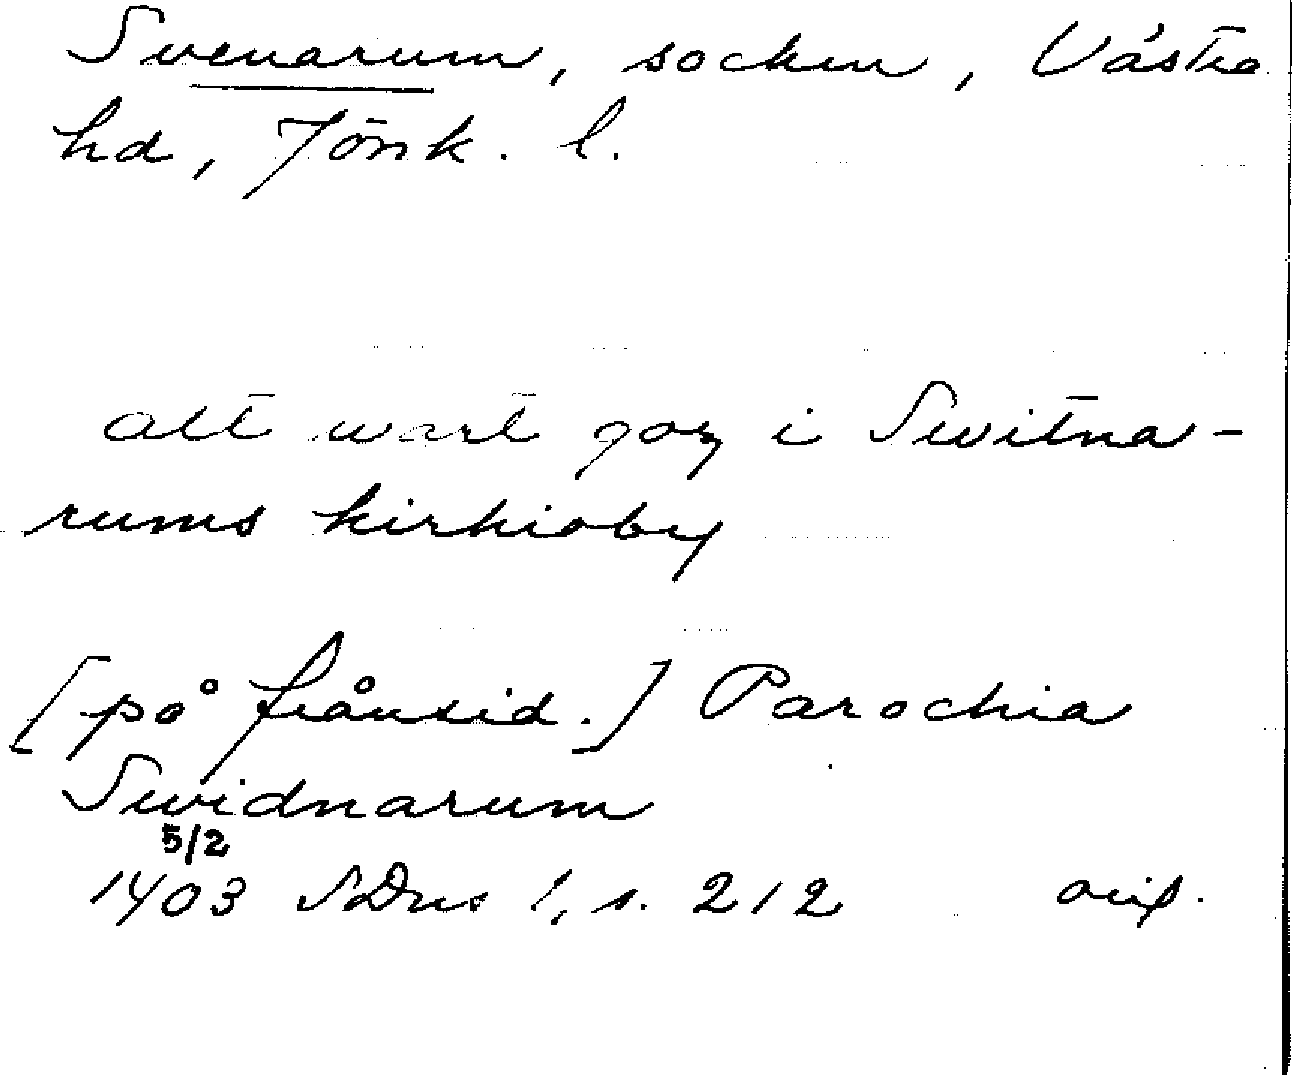 Svenarum, socken, Västra
hd, Jönk. l.
alt wart goz i Switna-
rums kirkioby
[på frånsid.] Parochia
Swidnarum
5/2
1403 SDns 1, s. 212 orig.